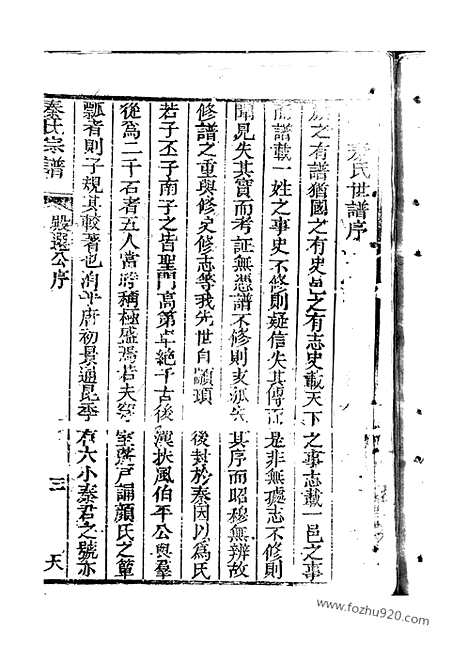 秦氏世譜序
族之有譜猶國之有史邑之有志史載天下之事志載一邑之事
而譜載一姓之事史不修則疑信失其傳而是非無據志不修則
聞見失其實而考証無憑譜不修則支派失其序而昭穆無辨故
修譜之重與修史修志等我先世自顓頊後封於秦因以爲氏
若子丕子南子之皆聖門高第卓絶千古後漢扶風伯平公與羣
從爲二千石者五人當時稱極盛焉若夫窮室蓬戸誦顔氏之簞
瓢者則子規其較著也洎乎唐初景通昆季有大小秦君之號亦
秦氏宗譜
殿選公序
三
天
www.fozhu920.com